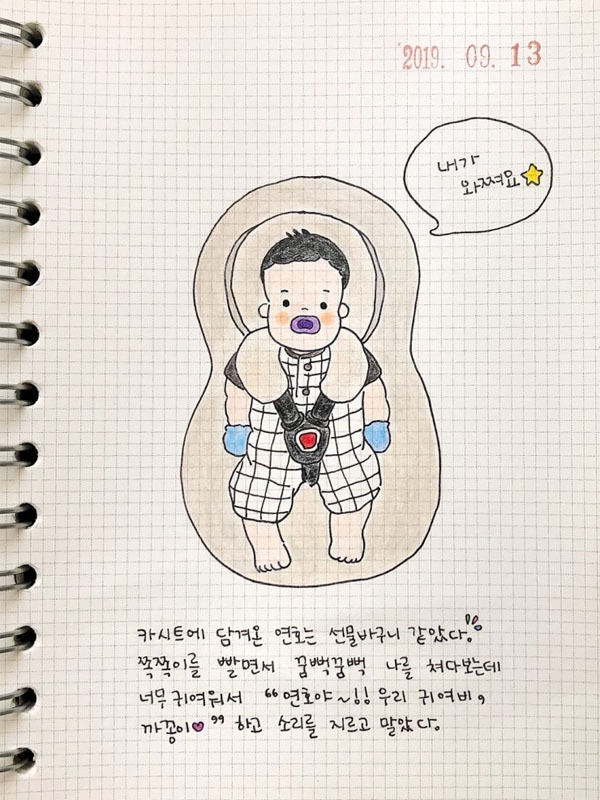 2019. 09. 13
내가
와쪄요
카시트에 담겨온 연호는 선물바구니 같았다.
쪽쪽이를 빨면서 꿈뻑꿈뻑 나를 쳐다보는데
너무 귀여워서 “연호야~!! 우리 귀여비,
까꿍이” 하고 소리를 지르고 말았다.